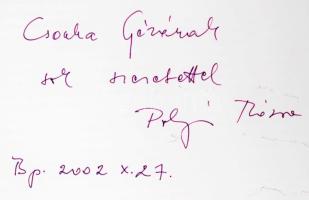 Csonka Gézának
sok szeretettel
Polgár Rózsa
Bp. 2002 X. 27.